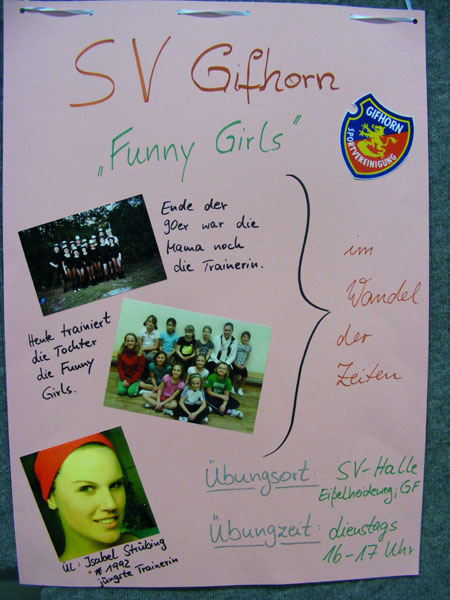 SV Gifhorn
GIFHORN
SPORTVEREINIGUNG
„Funny Girls"
Ende der
90er war die
Mama noch
die Trainerin.
Heute trainiert
die Tochter
die Funny
Girls.
im
Wandel
der
Zeiten
Übungsort: SV-Halle
Eißelheideweg, GF
Übungzeit: dienstags
16-17 Uhr
ÜL: Isabel Strübing
* 1992
jüngste Trainerin